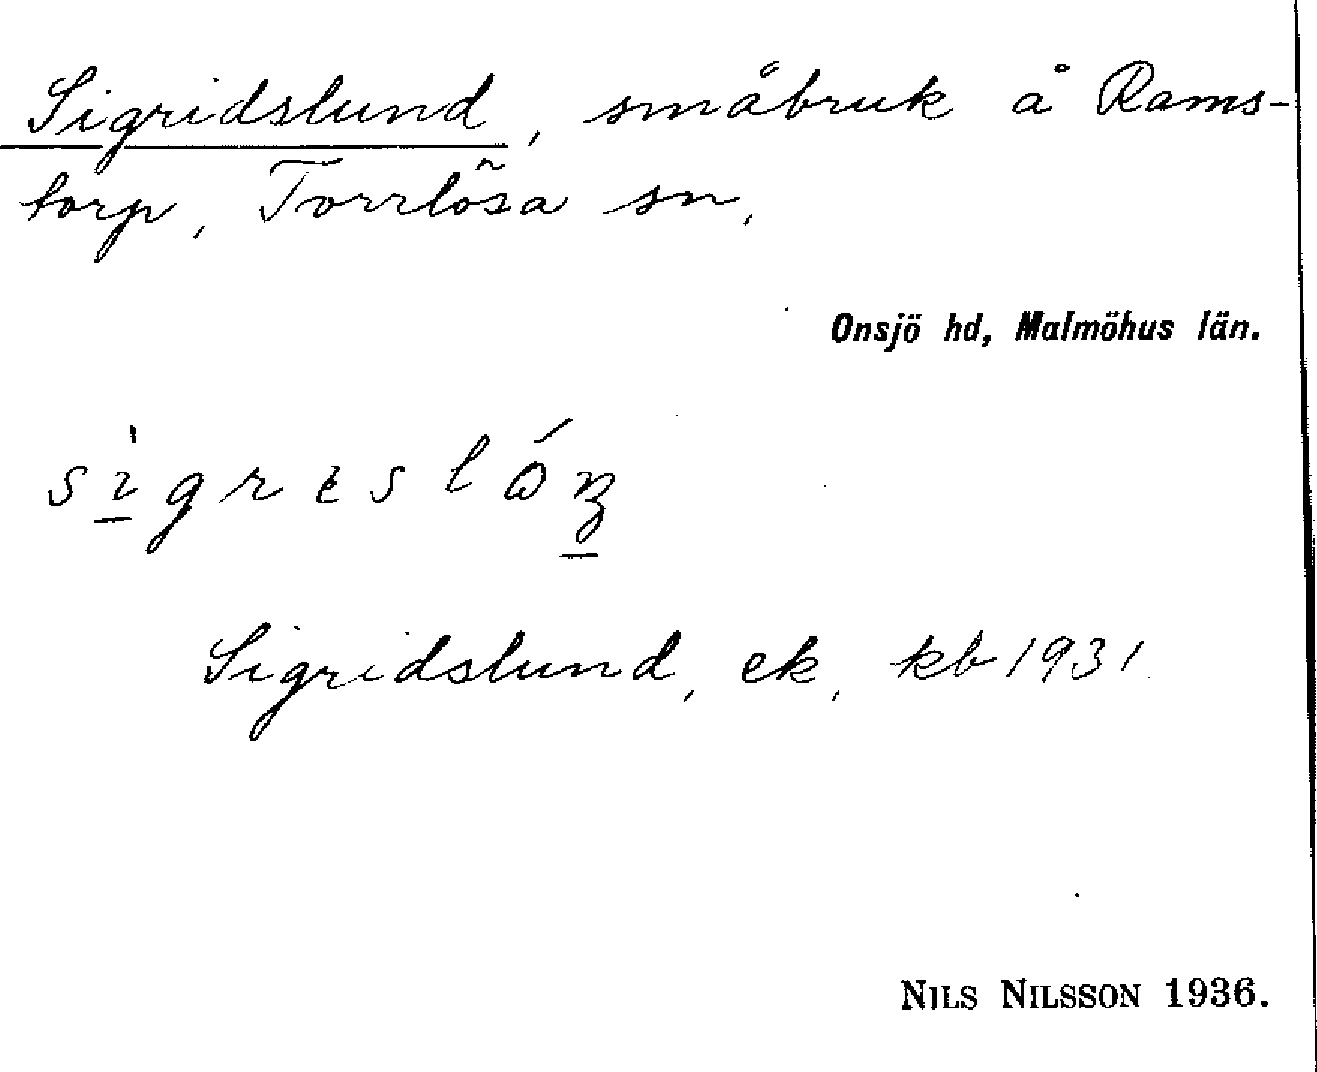 Sigridslund, småbruk å Rams-
torp, Torrlösa sn,
Onsjö hd, Malmöhus län.
Sigridslund, ek, kb 1931
NILS NILSSON 1936.